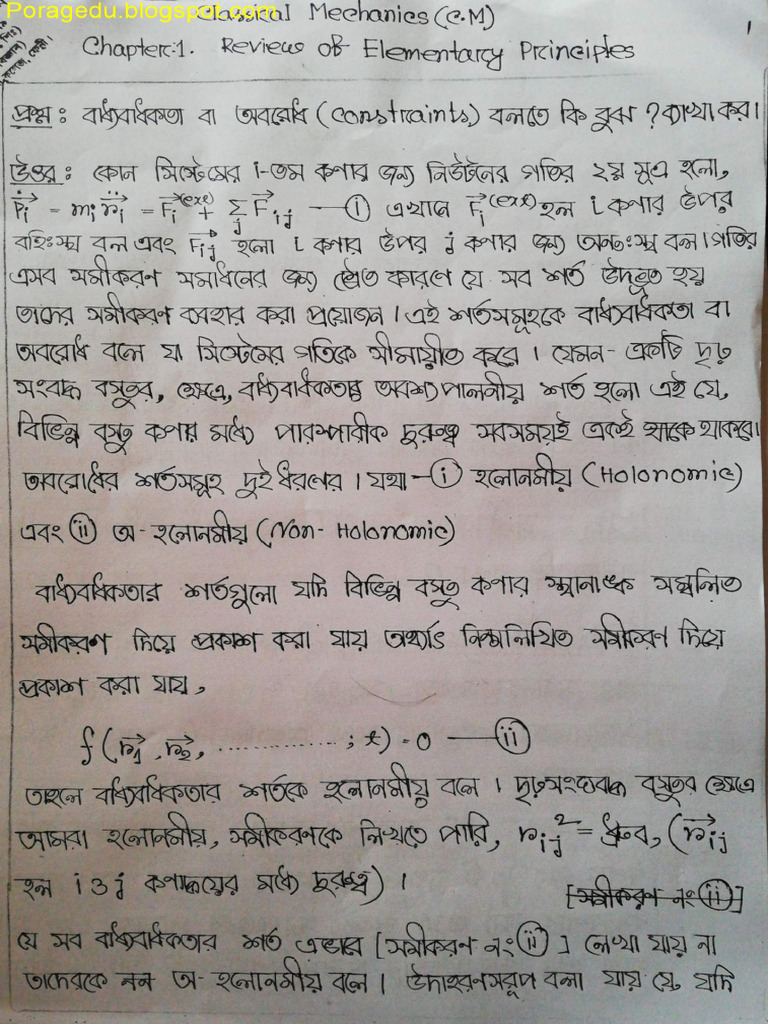 Poragedu.blogspot.com
Classical Mechanics (C.M)
1
Chapter:1. Review of Elementary Principles
প্রশ্ন : বাধ্যবাধকতা বা অবরোধ (constraints) বলতে কি বুঝ ? ব্যাখা কর।
উত্তর : কোন সিস্টেমের i-তম কণার জন্য নিউটনের গতির ২য় সূত্র হলো,
$\dot{\vec{P_i}} = m_i \ddot{\vec{r_i}} = \vec{F_i}^{(ext)} + \sum_j \vec{F}_{ij}$ —(i) এখানে $\vec{F_i}^{(ext)}$ হল i কণার উপর
বহিঃস্থ বল এবং $\vec{F}_{ij}$ হলো i কণার উপর j কণার জন্য অন্তঃস্থ বল। গতির
এসব সমীকরণ সমাধানের জন্য ভৌত কারণে যে সব শর্ত উদ্ভূত হয়
তাদের সমীকরণ ব্যবহার করা প্রয়োজন। এই শর্তসমূহকে বাধ্যবাধকতা বা
অবরোধ বলে যা সিস্টেমের গতিকে সীমায়ীত করে। যেমন- একটি দৃঢ়
সংবদ্ধ বস্তুর, ক্ষেত্রে, বাধ্যবাধকতার অবশ্যপালনীয় শর্ত হলো এই যে,
বিভিন্ন বস্তু কণার মধ্যে পারস্পারীক দুরুত্ব সবসময়ই একই থাকে থাকবে।
অবরোধের শর্তসমূহ দুই ধরণের। যথা —(i) হলোনমীয় (Holonomic)
এবং (ii) অ-হলোনমীয় (Non-Holonomic)
বাধ্যবাধকতার শর্তগুলো যদি বিভিন্ন বস্তু কণার স্থানাঙ্ক সম্বলিত
সমীকরণ দিয়ে প্রকাশ করা যায় অর্থ্যাৎ নিম্নলিখিত সমীকরণ দিয়ে
প্রকাশ করা যায়,
$f(\vec{r_1}, \vec{r_2}, ............... ; t) = 0$ —(ii)
তাহলে বাধ্যবাধকতার শর্তকে হলোনমীয় বলে। দৃঢ়সংঘবদ্ধ বস্তুর ক্ষেত্রে
আমরা হলোনমীয়, সমীকরণকে লিখতে পারি, $r_{ij}^2$ = ধ্রুব, ($\vec{r}_{ij}$
হল i ও j কণাদ্বয়ের মধ্যে দুরুত্ব)।
[সমীকরণ নং (ii)]
যে সব বাধ্যবাধকতার শর্ত এভাবে [সমীকরণ নং (ii)] লেখা যায় না
তাদেরকে নন অ-হলোনমীয় বলে। উদাহরণসরূপ বলা যায় যে, যদি